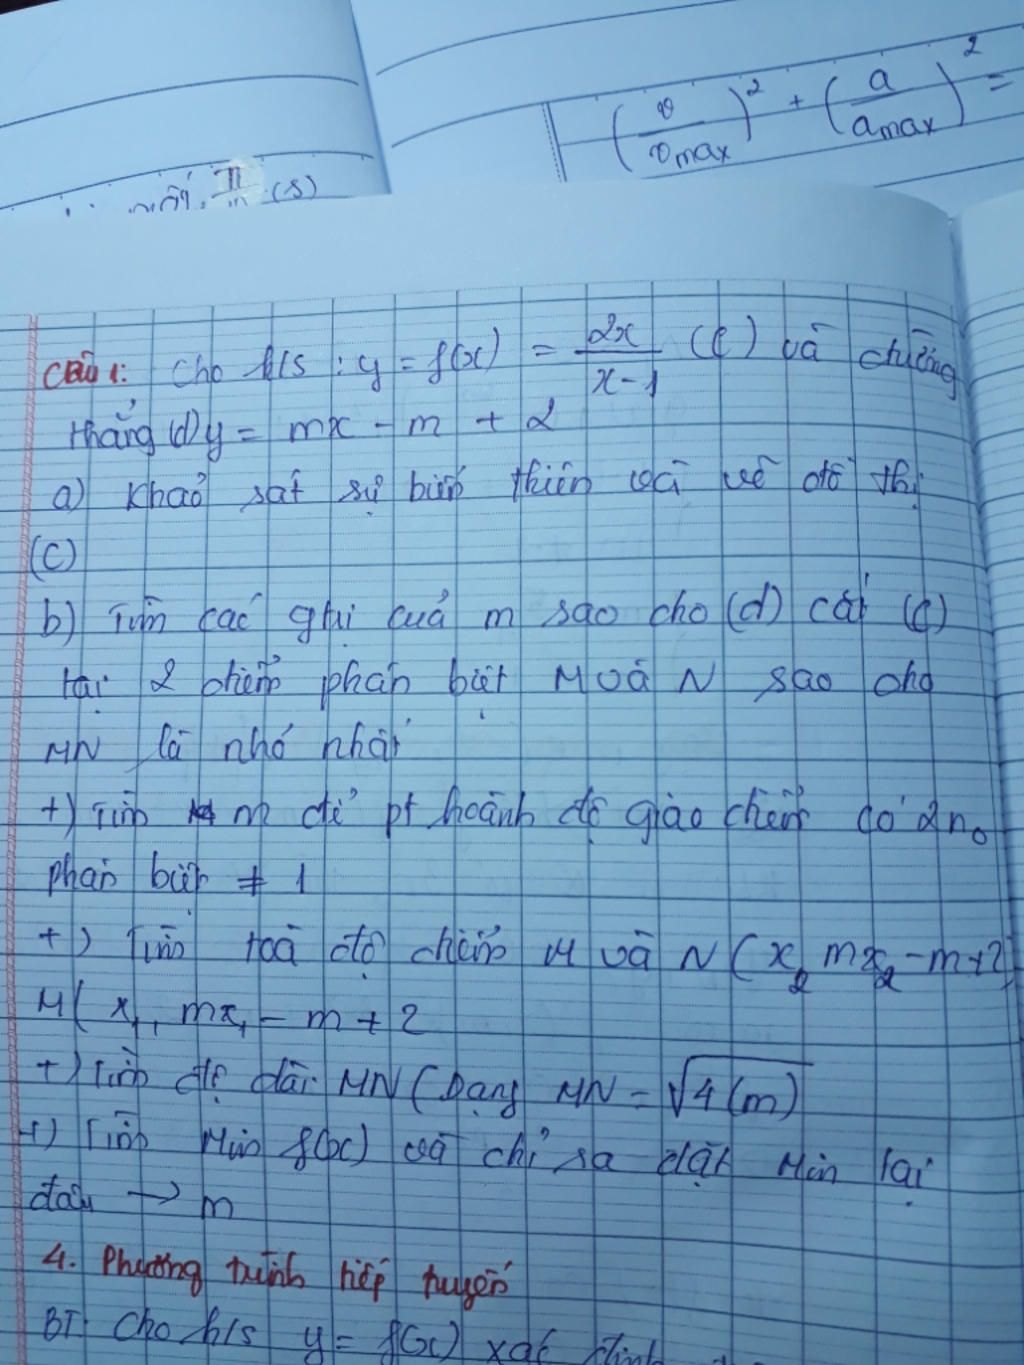 (v/vmax)² + (a/amax)² =
π (s)
Câu 1: Cho h/s : y = f(x) = 2x/(x-1) (C) và đường
thẳng (d) y = mx - m + 2
a) Khảo sát sự biến thiên và vẽ đồ thị
(C)
b) Tìm các gtrị của m sao cho (d) cắt (C)
tại 2 điểm phân biệt M và N sao cho
MN là nhỏ nhất
+) Tìm m để pt hoành độ giao điểm có 2 no
phân biệt ≠ 1
+) Tìm toạ độ điểm M và N (x₂, mx₂ - m+2)
M( x₁, mx₁ - m + 2
+) Tìm độ dài MN (Dạng MN = √4(m)
+) Tìm Min f(x) và chỉ ra đặt Min tại
đâu → m
4. Phương trình tiếp tuyến
BT: Cho h/s y = f(x) xác định